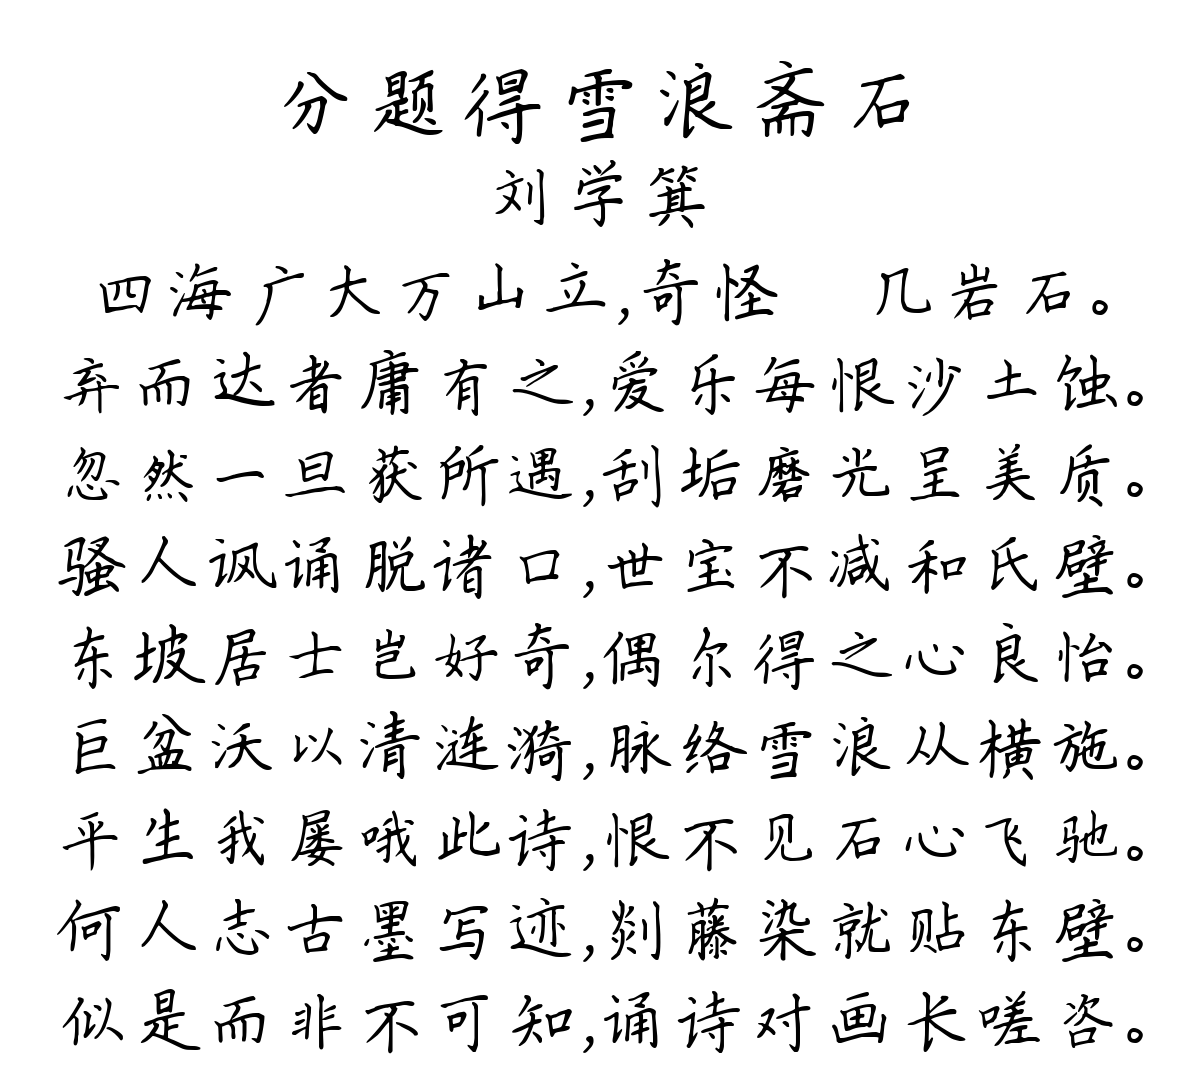 分题得雪浪斋石
刘学箕
四海广大万山立,奇怪 几岩石。
弃而达者庸有之,爱乐每恨沙土蚀。
忽然一旦获所遇,刮垢磨光呈美质。
骚人讽诵脱诸口,世宝不减和氏壁。
东坡居士岂好奇,偶尔得之心良怡。
巨盆沃以清涟漪,脉络雪浪从横施。
平生我屡哦此诗,恨不见石心飞驰。
何人志古墨写迹,剡藤染就贴东壁。
似是而非不可知,诵诗对画长嗟咨。